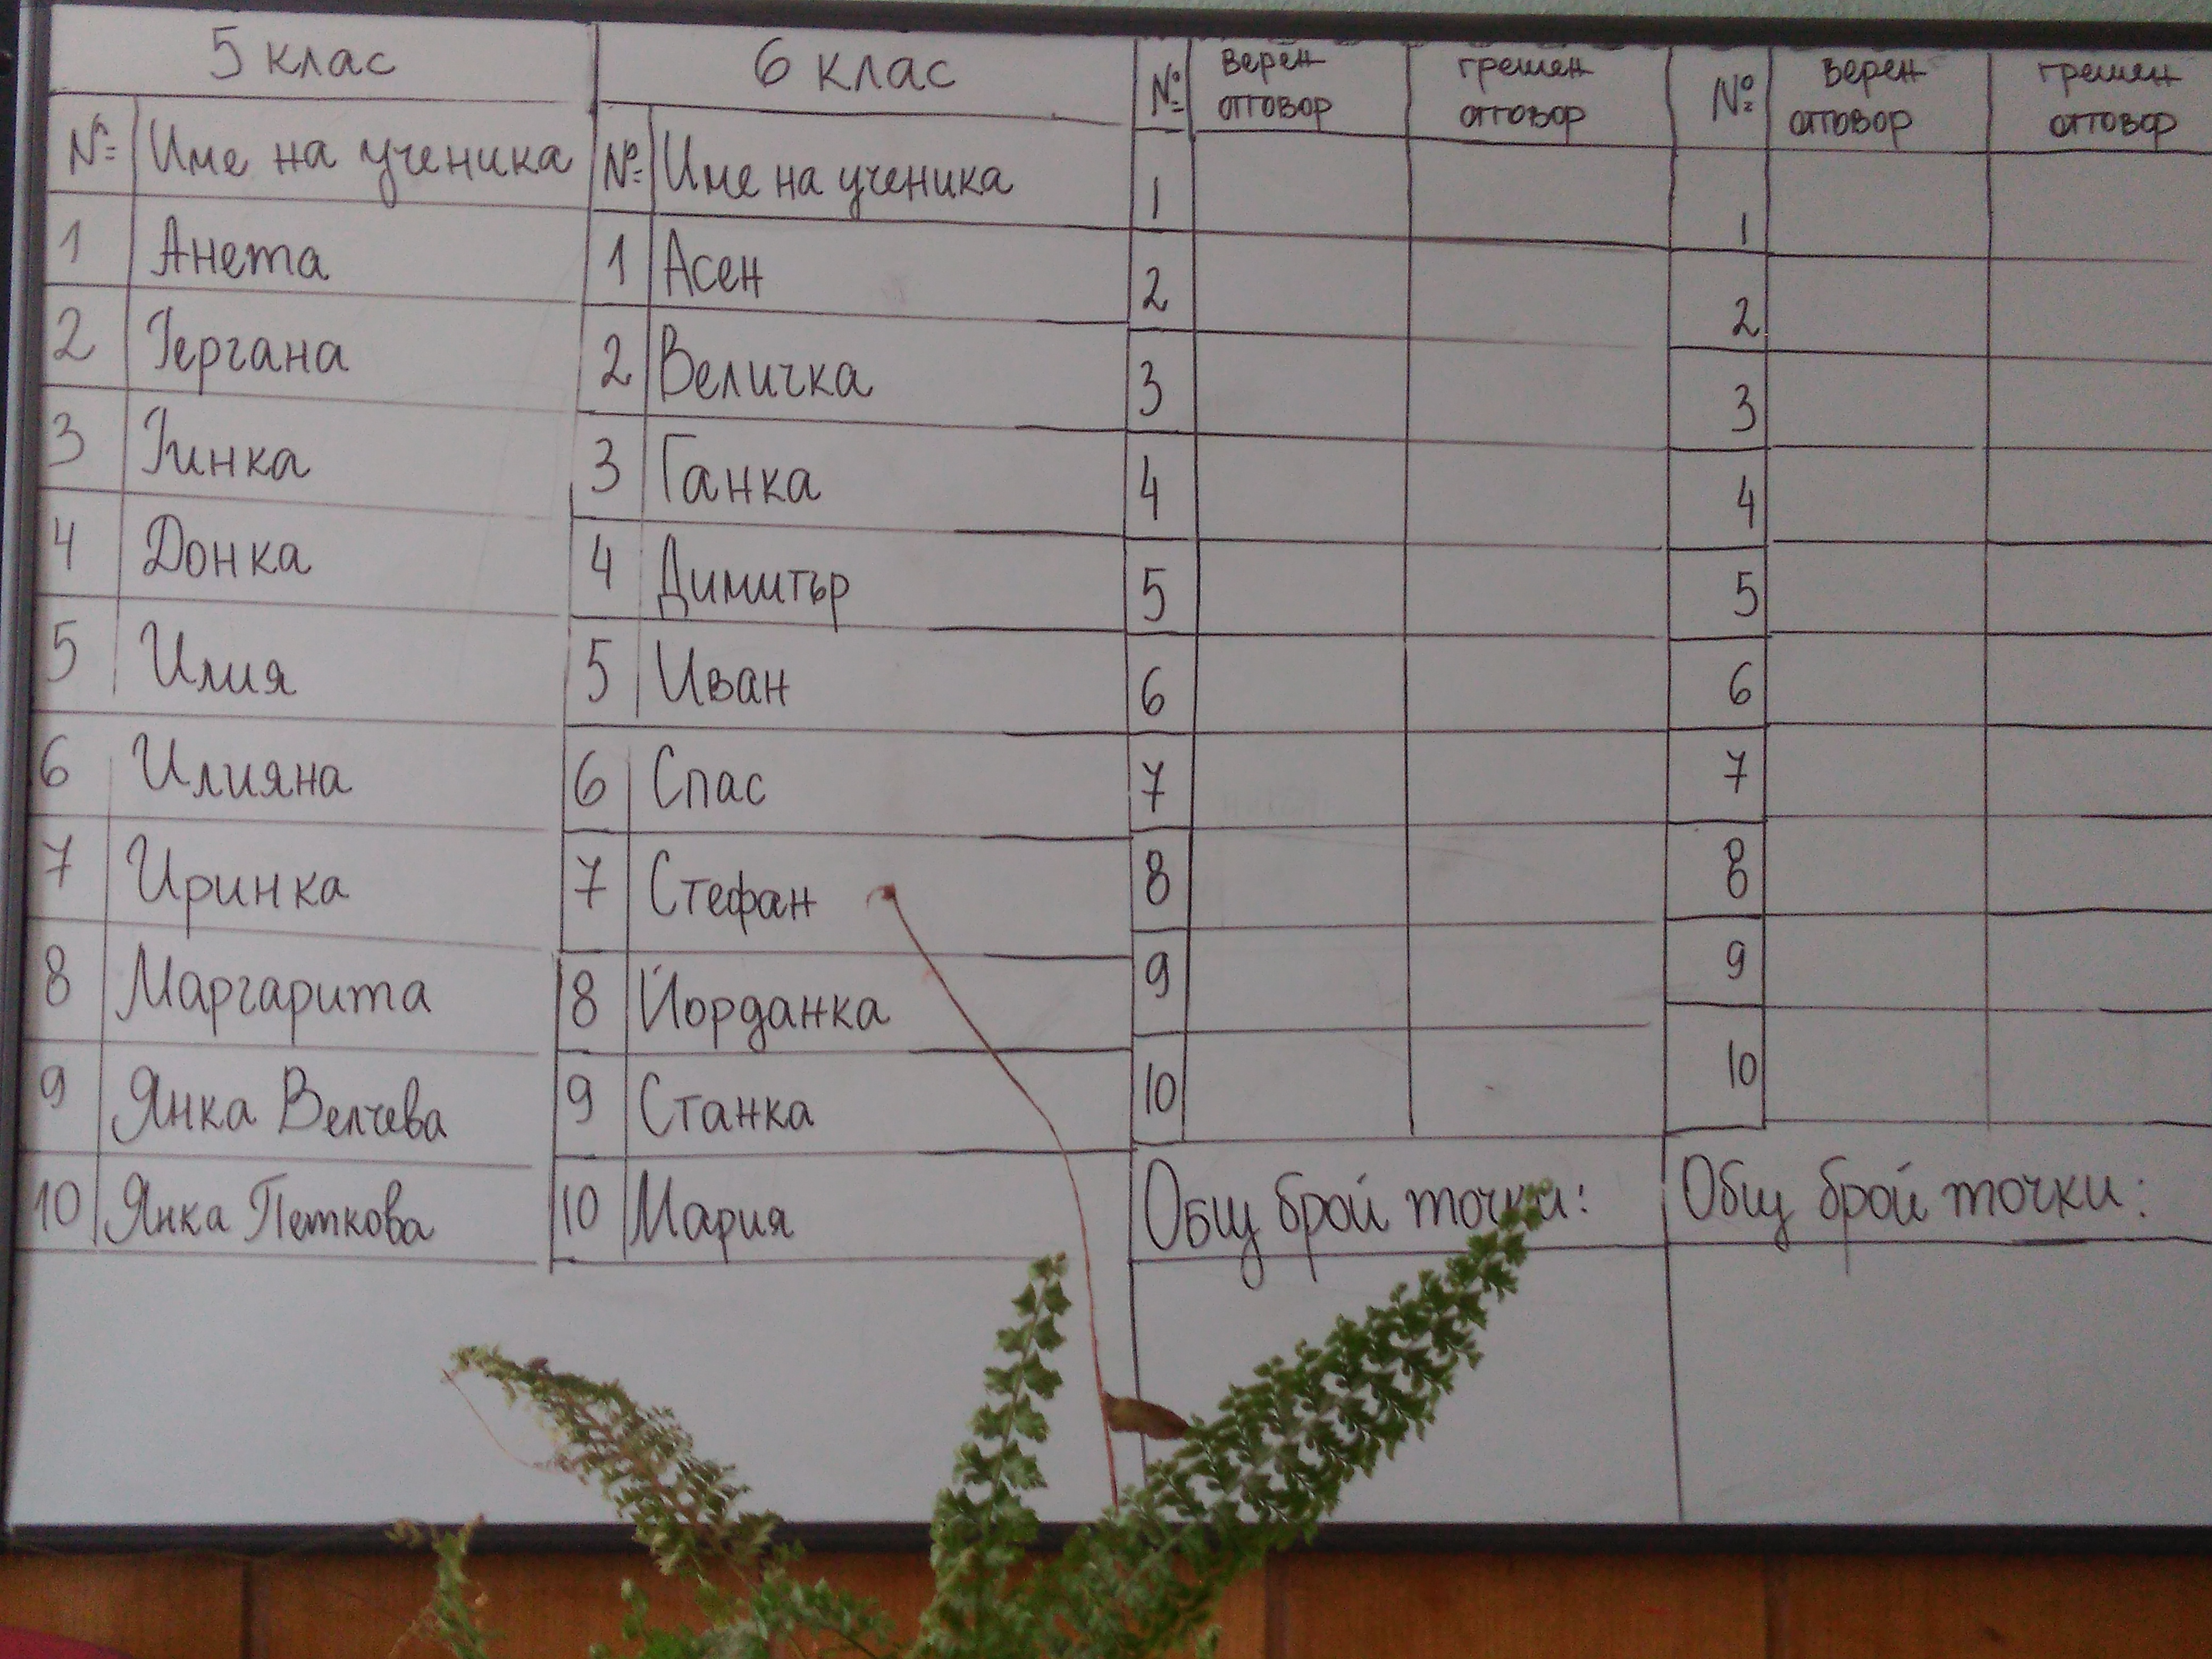 5 клас
№ Име на ученика
1 Анета
2 Гергана
3 Гинка
4 Донка
5 Илия
6 Илияна
7 Иринка
8 Маргарита
9 Янка Велчева
10 Янка Петкова
6 клас
№ Име на ученика
1 Асен
2 Величка
3 Ганка
4 Димитър
5 Иван
6 Спас
7 Стефан
8 Йорданка
9 Станка
10 Мария
№ верен отговор грешен отговор
1
2
3
4
5
6
7
8
9
10
Общ брой точки:
№ верен отговор грешен отговор
1
2
3
4
5
6
7
8
9
10
Общ брой точки: